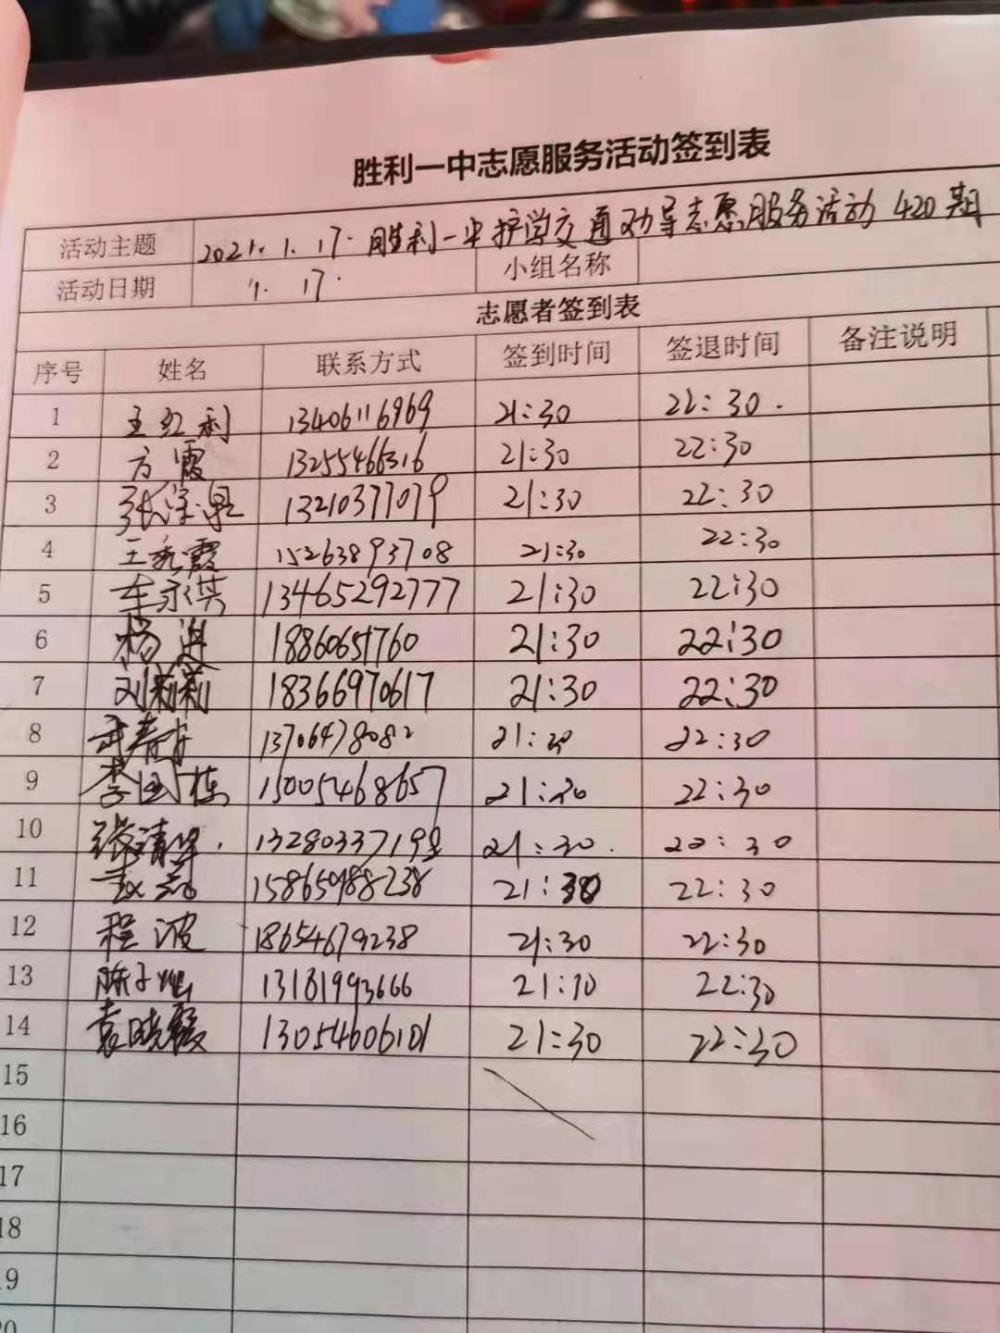 胜利一中志愿服务活动签到表
活动主题 2021.1.17. 胜利一中护学交通劝导志愿服务活动420期
活动日期 1. 17. 小组名称
志愿者签到表
序号 姓名 联系方式 签到时间 签退时间 备注说明
1 王红利 13406116969 21:30 22:30.
2 方霞 13255466316 21:30 22:30
3 13210377079 21:30 22:30
4 15263893708 21:30 22:30
5 车永祺 13465292777 21:30 22:30
6 18860651760 21:30 22:30
7 刘莉莉 18366970617 21:30 22:30
8 13706478082 21:30 22:30
9 李国栋 15005468657 21:30 22:30
10 21:30. 22:30
11 15865988238 21:30 22:30
12 程波 18654679238 21:30 22:30
13 13181993666 21:30 22:30
14 袁晓霞 13054606101 21:30 22:30
15
16
17
18
19
20